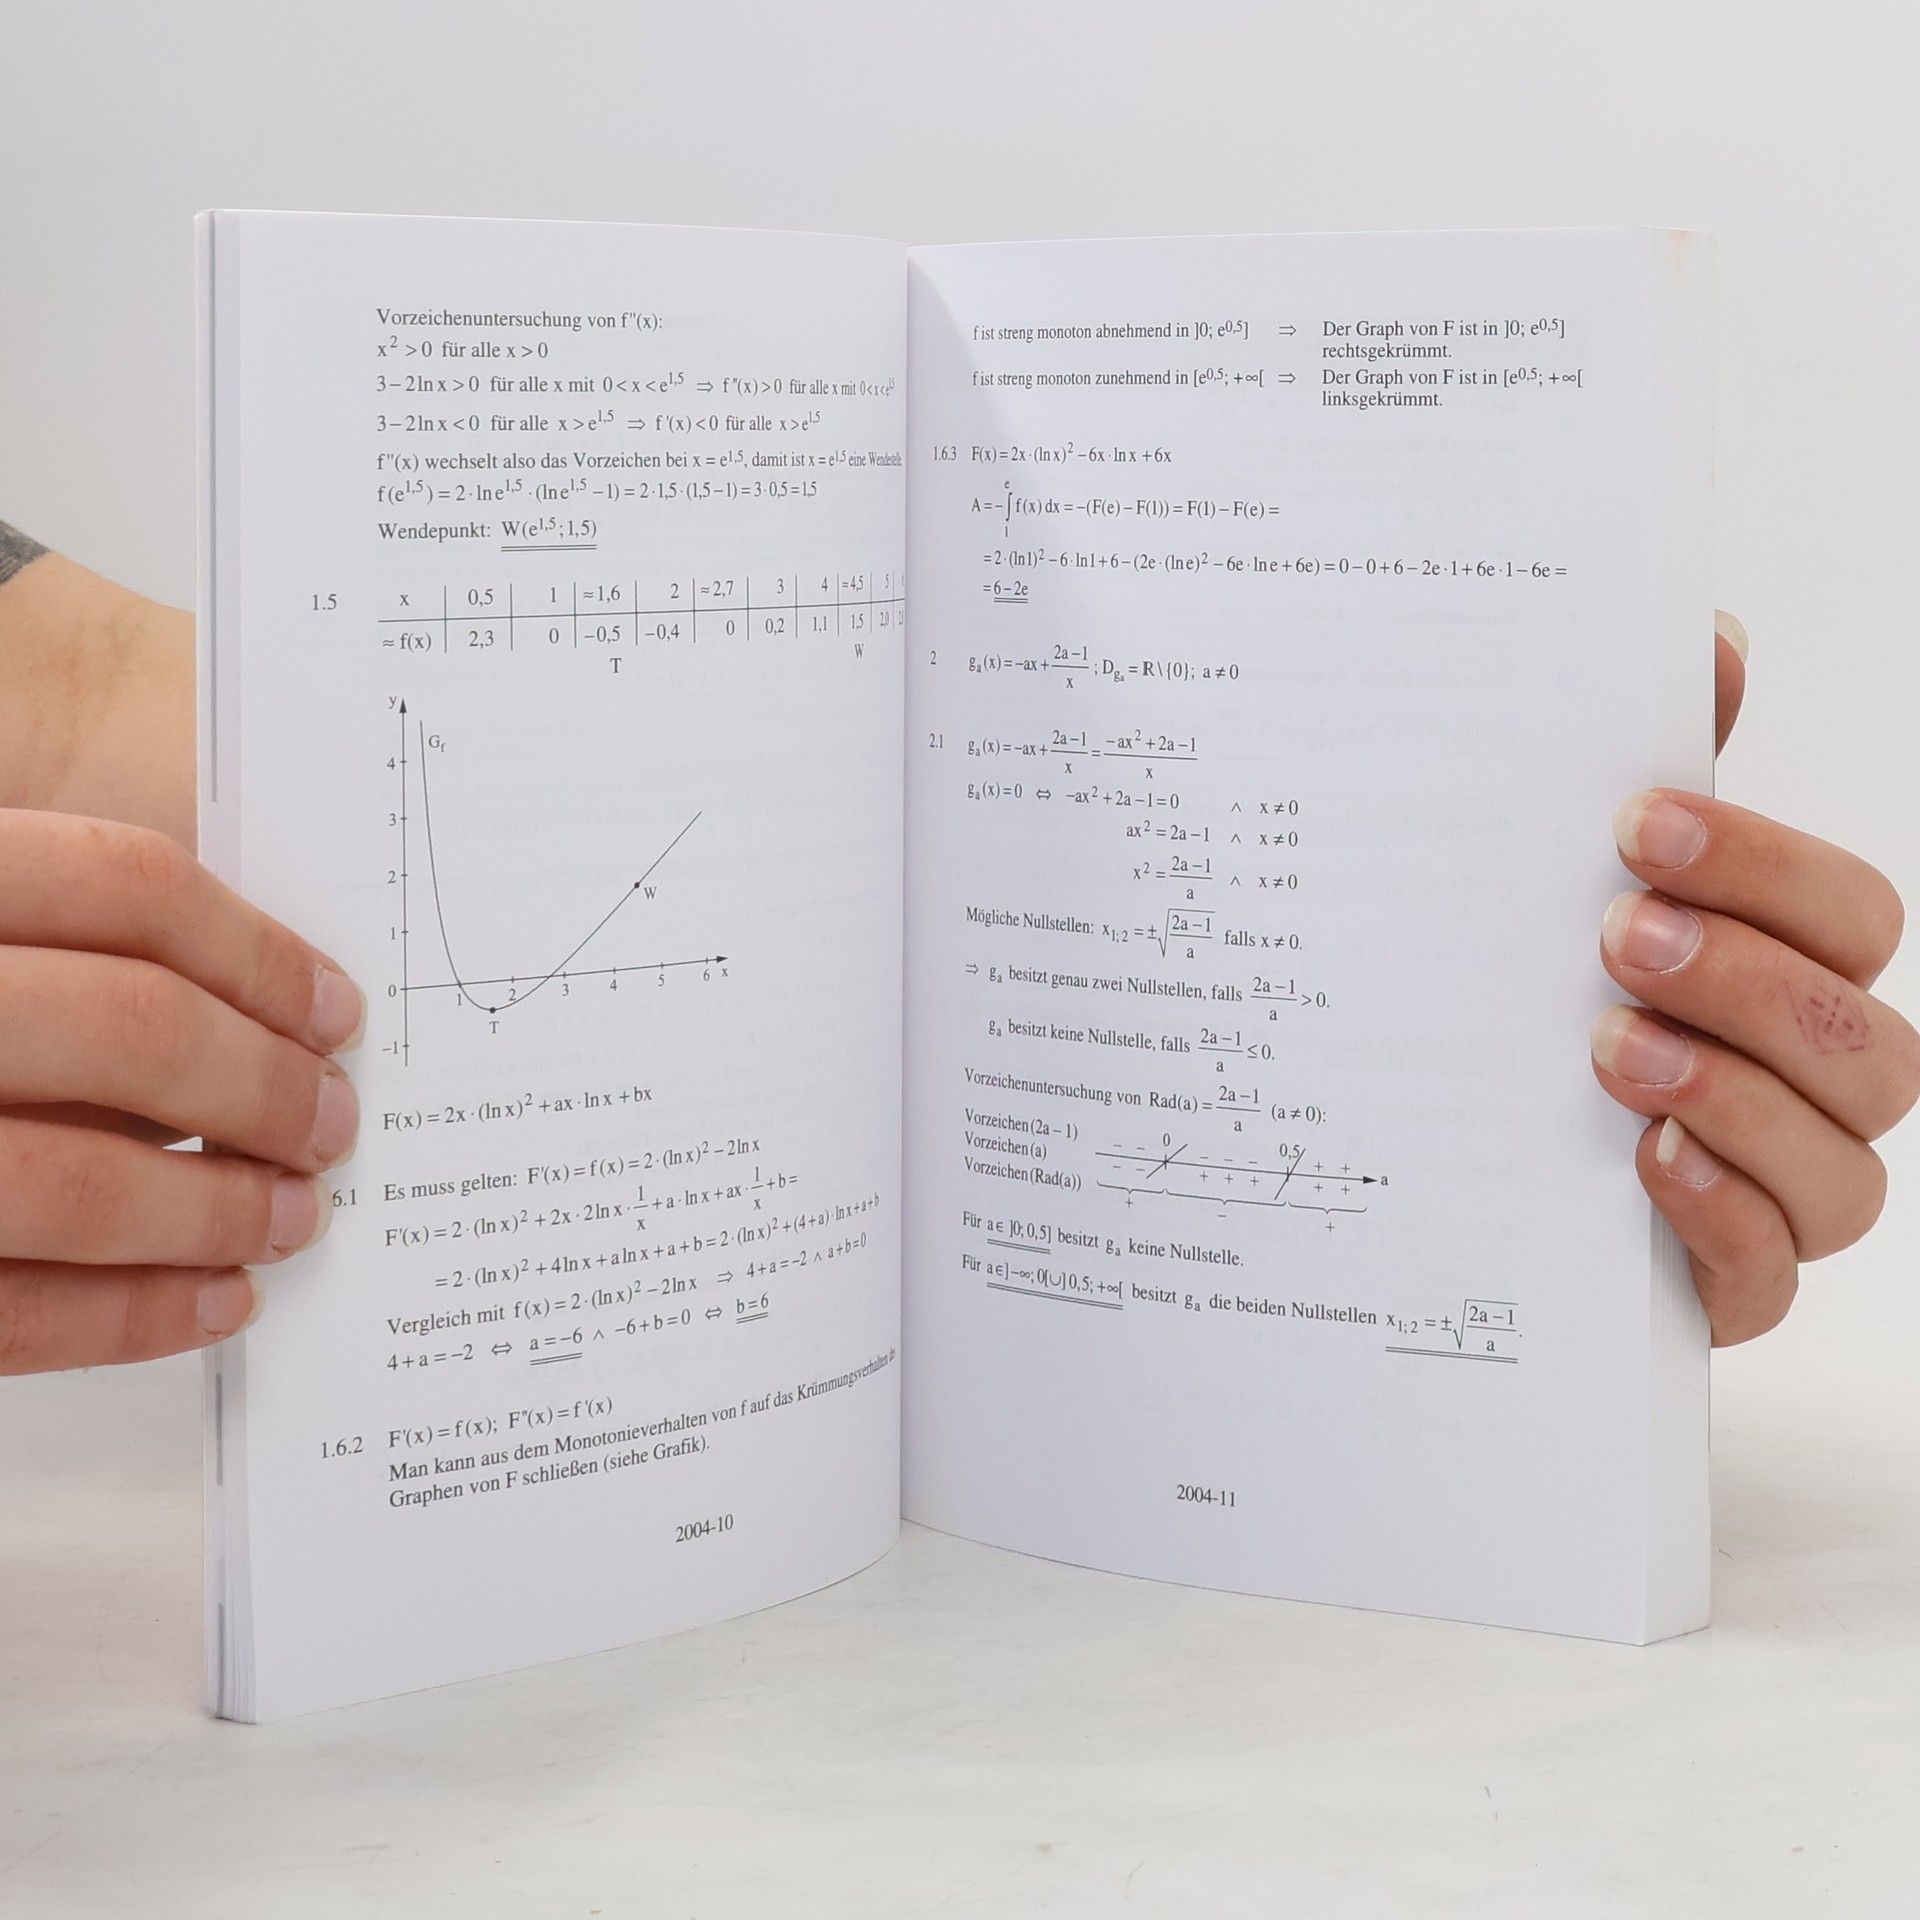 Vorzeichenuntersuchung von f"(x):
x² > 0 für alle x > 0
3 − 2 ln x > 0 für alle x mit 0 < x < e^1,5 ⇒ f"(x) > 0 für alle x mit 0 < x < e^1,5
3 − 2 ln x < 0 für alle x > e^1,5 ⇒ f'(x) < 0 für alle x > e^1,5
f"(x) wechselt also das Vorzeichen bei x = e^1,5, damit ist x = e^1,5 eine Wendestelle
f(e^1,5) = 2 · ln e^1,5 · (ln e^1,5 − 1) = 2 · 1,5 · (1,5 − 1) = 3 · 0,5 = 1,5
Wendepunkt: W(e^1,5; 1,5)
1.5 x 0,5 1 ≈1,6 2 ≈2,7 3 4 ≈4,5 5
≈ f(x) 2,3 0 −0,5 −0,4 0 0,2 1,1 1,5 2,0
T W
y
G_f
4
3
2
W
1
0 1 2 3 4 5 6 x
T
−1
F(x) = 2x · (ln x)² + ax · ln x + bx
6.1 Es muss gelten: F'(x) = f(x) = 2 · (ln x)² − 2 ln x
F'(x) = 2 · (ln x)² + 2x · 2 ln x · 1/x + a · ln x + ax · 1/x + b =
= 2 · (ln x)² + 4 ln x + a ln x + a + b = 2 · (ln x)² + (4 + a) · ln x + a + b
Vergleich mit f(x) = 2 · (ln x)² − 2 ln x ⇒ 4 + a = −2 ∧ a + b = 0
4 + a = −2 ⇔ a = −6 ∧ −6 + b = 0 ⇔ b = 6
1.6.2 F'(x) = f(x); F"(x) = f'(x)
Man kann aus dem Monotonieverhalten von f auf das Krümmungsverhalten des
Graphen von F schließen (siehe Grafik).
2004-10
f ist streng monoton abnehmend in ]0; e^0,5] ⇒ Der Graph von F ist in ]0; e^0,5]
rechtsgekrümmt.
f ist streng monoton zunehmend in [e^0,5; +∞[ ⇒ Der Graph von F ist in [e^0,5; +∞[
linksgekrümmt.
1.6.3 F(x) = 2x · (ln x)² − 6x · ln x + 6x
A = −∫₁^e f(x) dx = −(F(e) − F(1)) = F(1) − F(e) =
= 2 · (ln 1)² − 6 · ln 1 + 6 − (2e · (ln e)² − 6e · ln e + 6e) = 0 − 0 + 6 − 2e · 1 + 6e · 1 − 6e =
= 6 − 2e
2 g_a(x) = −ax + (2a − 1)/x ; D_g_a = R \ {0}; a ≠ 0
2.1 g_a(x) = −ax + (2a − 1)/x = (−ax² + 2a − 1)/x
g_a(x) = 0 ⇔ −ax² + 2a − 1 = 0 ∧ x ≠ 0
ax² = 2a − 1 ∧ x ≠ 0
x² = (2a − 1)/a ∧ x ≠ 0
Mögliche Nullstellen: x_1;2 = ±√((2a − 1)/a) falls x ≠ 0.
⇒ g_a besitzt genau zwei Nullstellen, falls (2a − 1)/a > 0.
g_a besitzt keine Nullstelle, falls (2a − 1)/a ≤ 0.
Vorzeichenuntersuchung von Rad(a) = (2a − 1)/a (a ≠ 0):
Vorzeichen (2a − 1) − − 0 − − − 0,5 + +
Vorzeichen (a) − − + + + + + a
Vorzeichen (Rad(a)) + − +
Für a ∈ ]0; 0,5] besitzt g_a keine Nullstelle.
Für a ∈ ]−∞; 0[ ∪ ]0,5; +∞[ besitzt g_a die beiden Nullstellen x_1;2 = ±√((2a − 1)/a).
2004-11